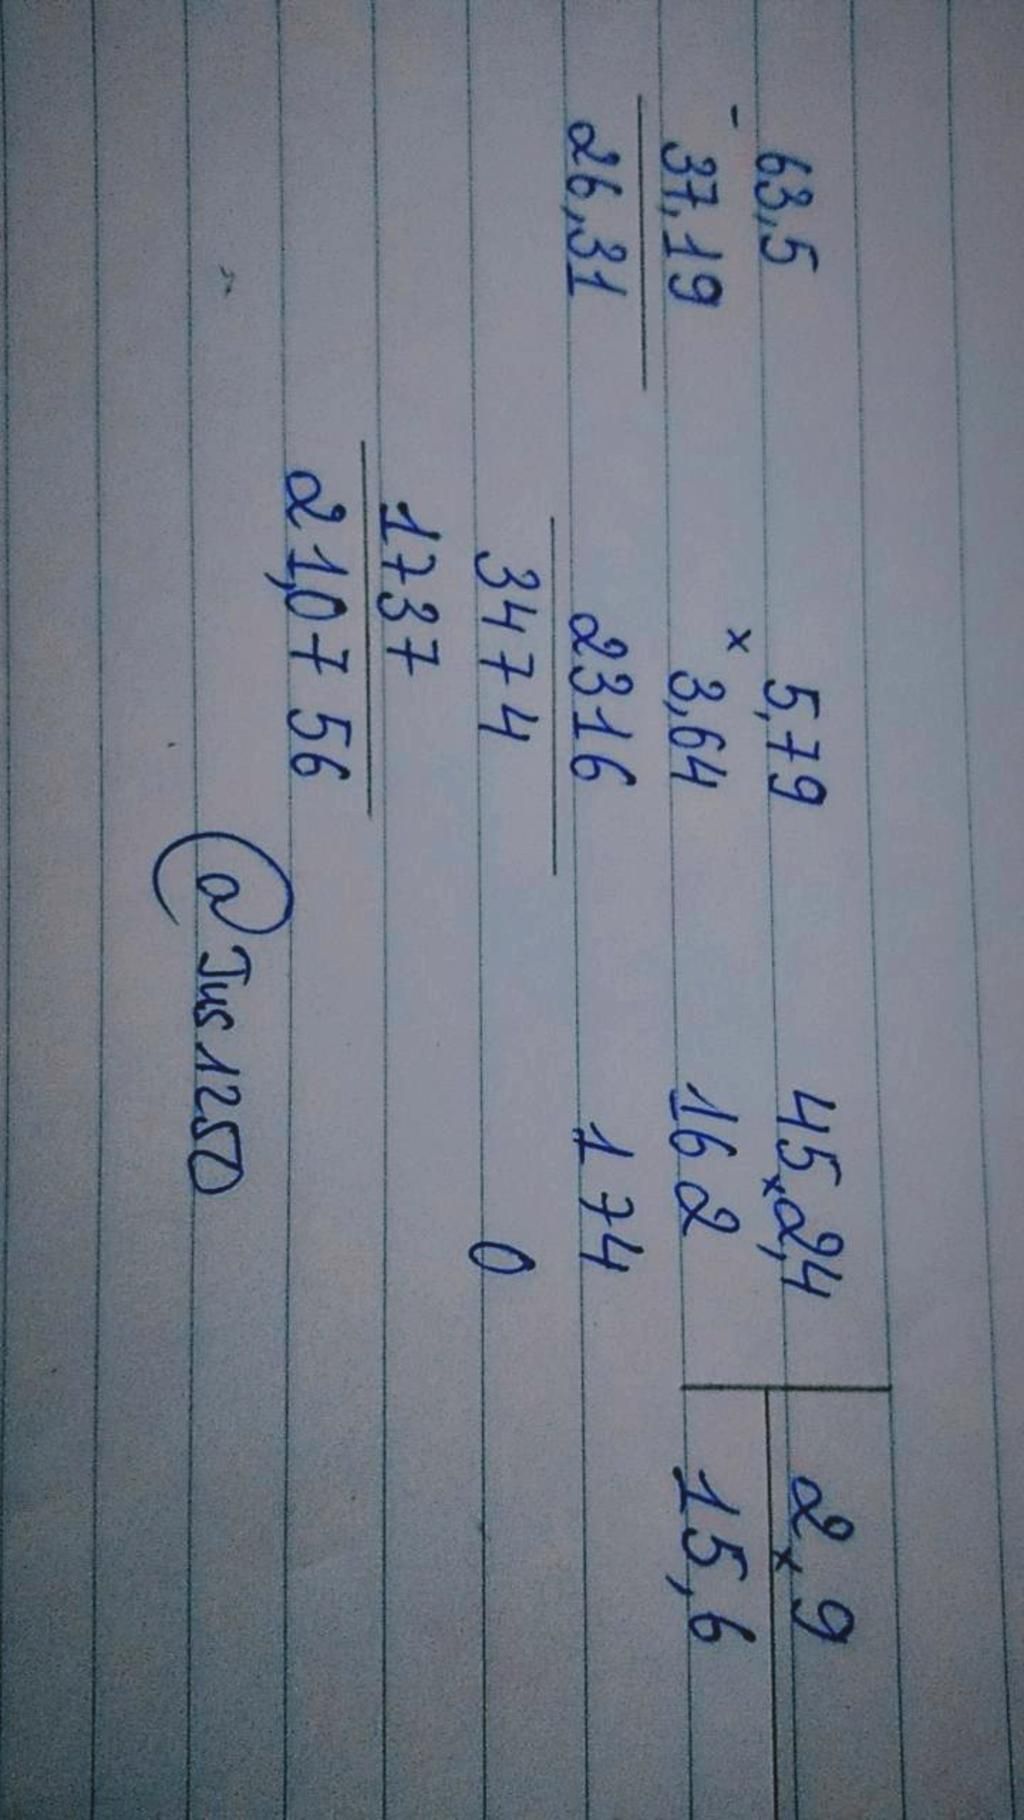 63,5
- 37,19
26,31
5,79
× 3,64
2316
3474
1737
21,0756
45,2,4 | 2,9
162 | 15,6
174
0
@Tus1250